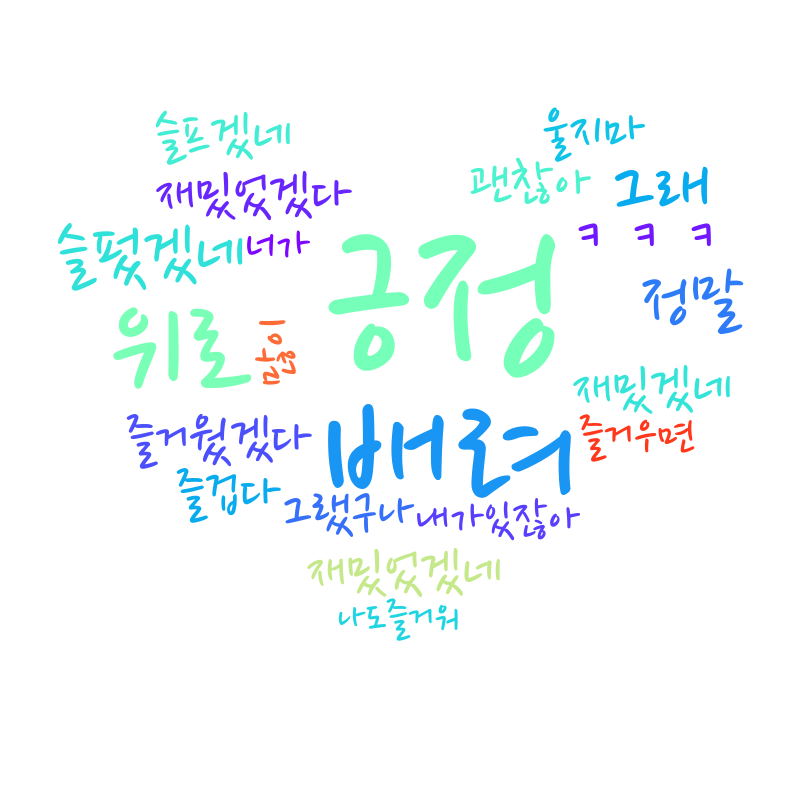 슬프겠네
울지마
재밌었겠다
괜찮아
그래
슬펐겠네
너가
긍정
ㅋ ㅋ ㅋ
위로
많이
정말
재밌겠네
즐거웠겠다
배려
즐거우면
즐겁다
그랬구나
내가있잖아
재밌었겠네
나도즐거워